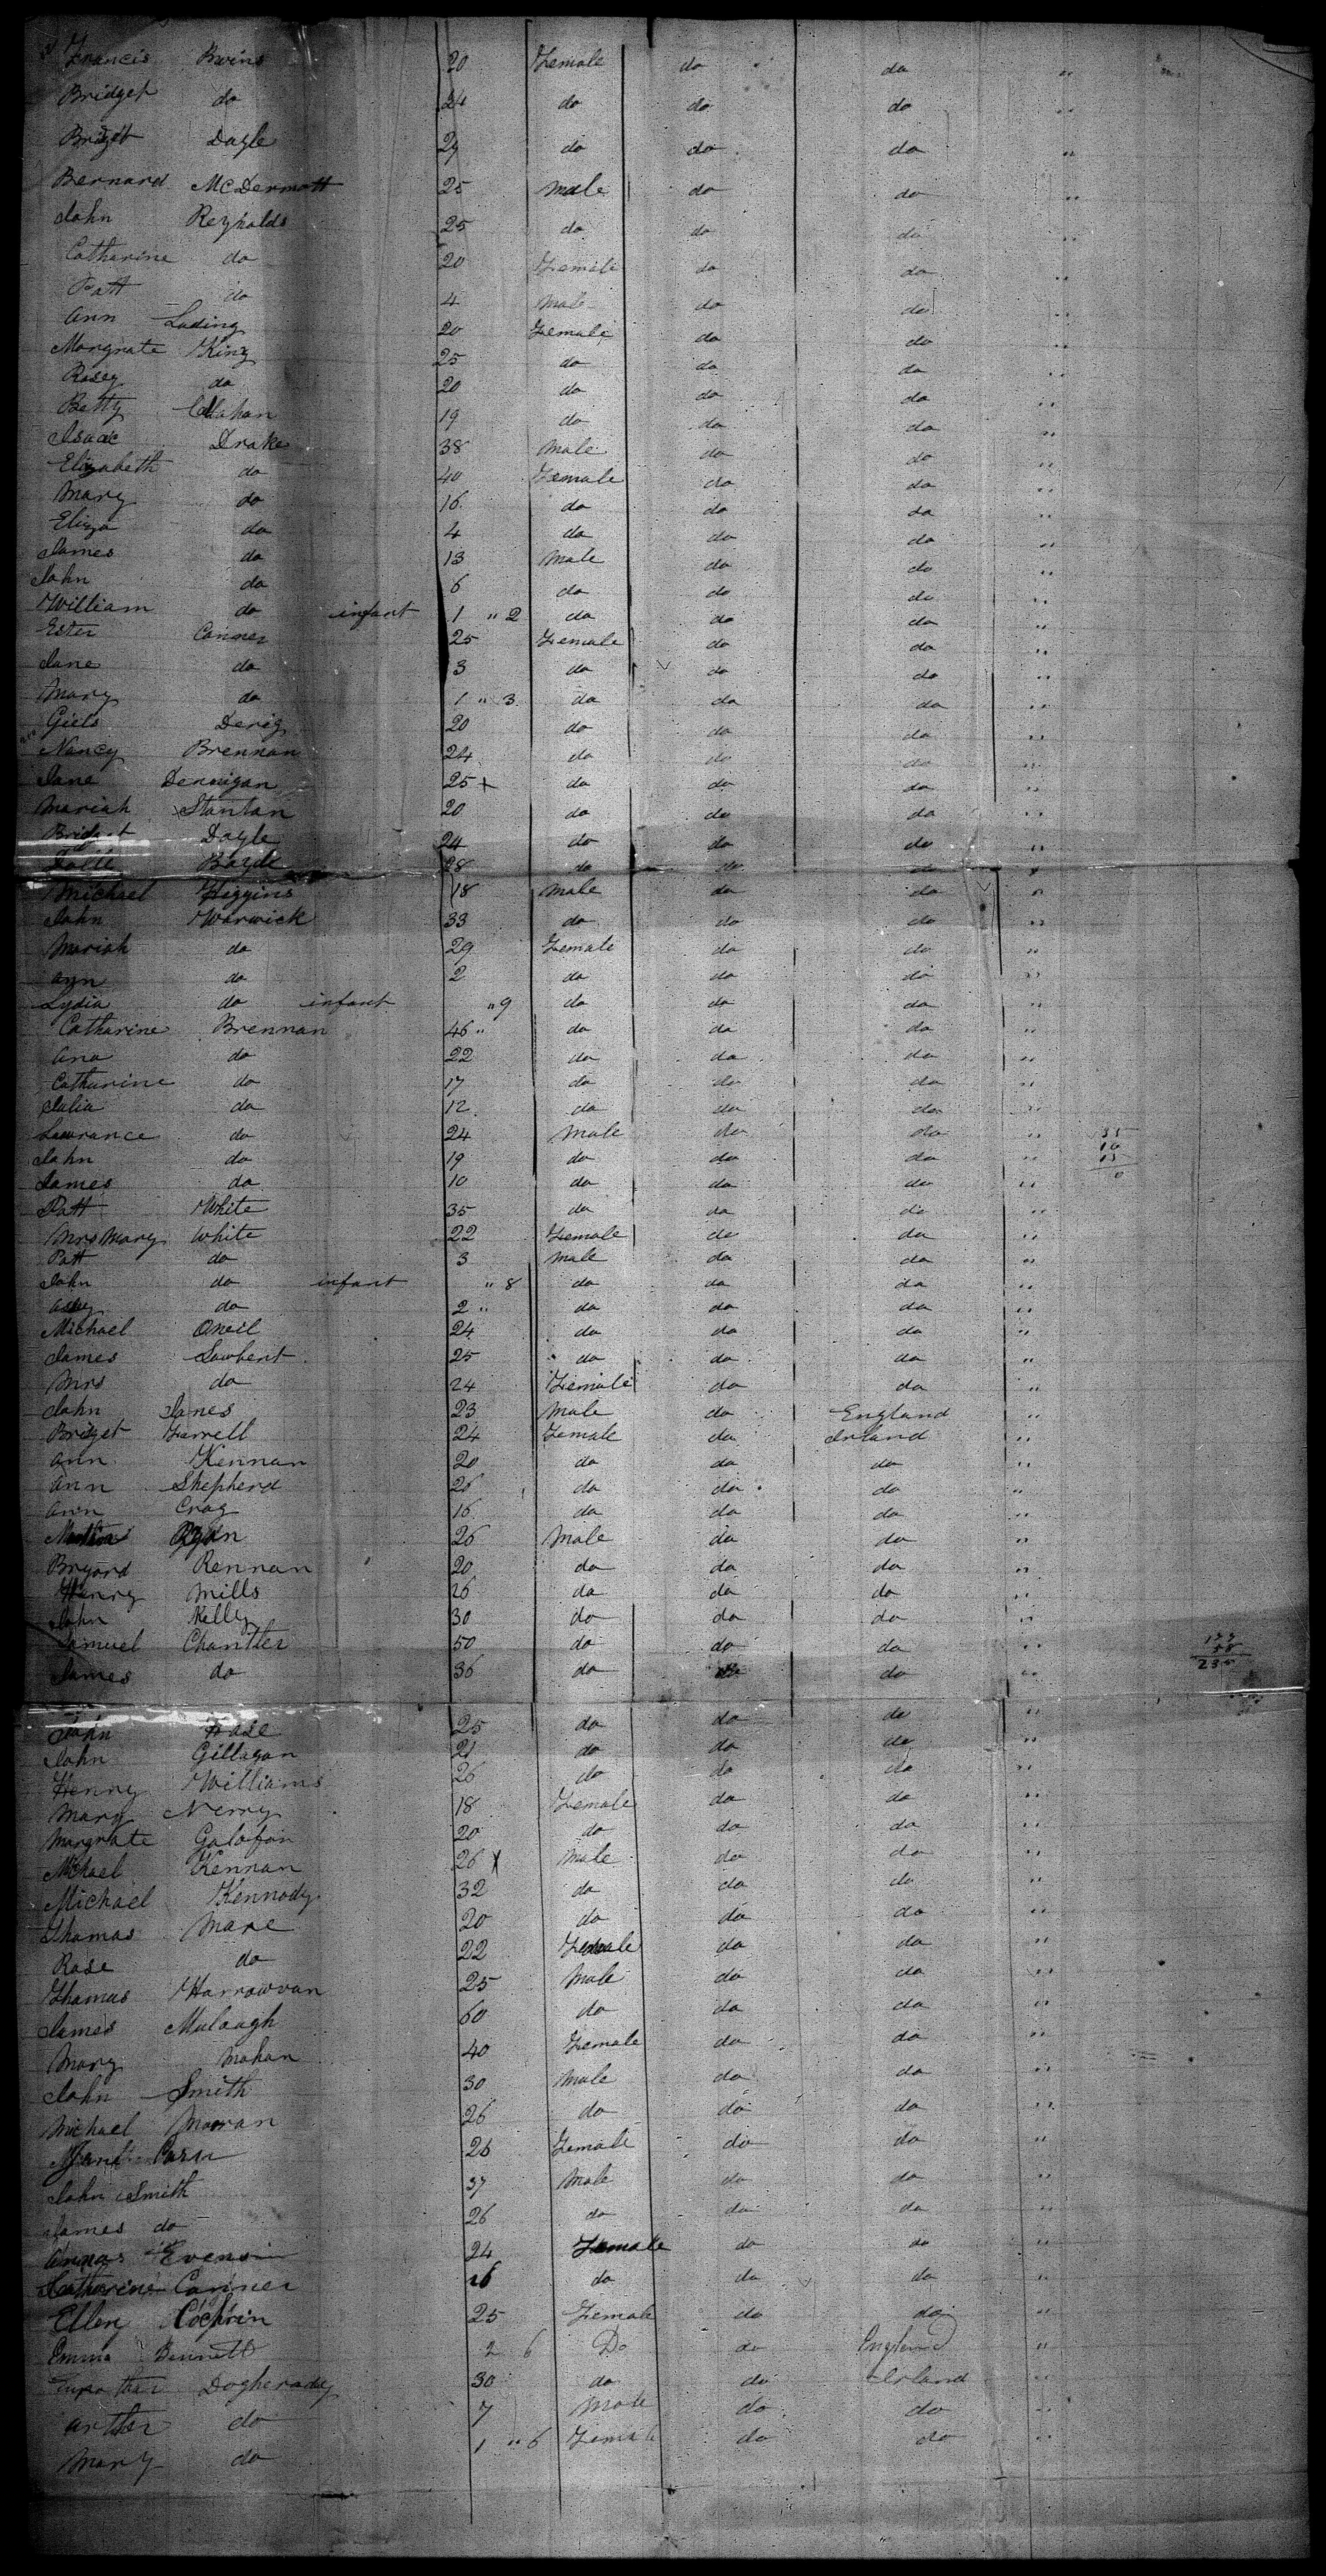 Francis Bwins 20 Female do do "
Bridget do 24 do do do "
Bridget Doyle 29 do do do "
Bernard McDermott 25 Male do do "
John Reynolds 25 do do do "
Catharine do 20 Female do do "
Patt do 4 Male do do "
Ann Luding 20 Female do do "
Margrate King 25 do do do "
Rosey do 20 do do do "
Betty Callahan 19 do do do "
Isaac Drake 38 Male do do "
Elizabeth do 40 Female do do "
Mary do 16 do do do "
Eliza do 4 do do do "
James do 13 Male do do "
John do 6 do do do "
William do infant 1 " 2 do do do "
Ester Conner 25 Female do do "
Jane do 3 do do do "
Mary do 1 " 3 do do do "
Giels Derig 20 do do do "
Nancy Brennan 24 do do do "
Jane Dennigan 25 + do do do "
Mariah Stantan 20 do do do "
Bridget Doyle 24 do do do "
Boyde 28 do do do "
Michael Higgins 18 Male do do "
John Warwick 33 do do do "
Mariah do 29 Female do do "
Ann do 2 do do do "
Lydia do infant " 9 do do do "
Catharine Brennan 46 " do do do "
Ana do 22 do do do "
Catharine do 17 do do do "
Julia do 12 do do do "
Lawrance do 24 Male do do "
John do 19 do do do "
James do 10 do do do "
Patt White 35 do do do "
Mrs Mary White 22 Female do do "
Patt do 3 Male do do "
John do infant " 8 do do do "
do 2 " do do do "
Michael Oneil 24 do do do "
James Lawbent 25 do do do "
Mrs do 24 Female do do "
John Janes 23 Male do England "
Bridget Farrell 24 Female do Irland "
Ann Kennan 20 do do do "
Ann Shepherd 26 do do do "
Ann Crag 16 do do do "
Ryan 26 Male do do "
Bryard Rennan 20 do do do "
Henry Mills 26 do do do "
John Kelly 30 do do do "
Samuel Chantler 50 do do do "
James do 36 do do do "
John Rase 25 do do do "
John Gillagan 21 do do do "
Henry Williams 26 do do do "
Mary Nerry 18 Female do do "
Margrate Galofan 20 do do do "
Michael Kennan 26 X Male do do "
Michael Kennody 32 do do do "
Thomas Mare 20 do do do "
Rase do 22 Female do do "
Thamus Harrowvan 25 Male do do "
James Mulaugh 60 do do do "
Mary Mahan 40 Female do do "
John Smith 30 Male do do "
Michael Moran 26 do do do "
26 Female do do "
John Smith 37 Male do do "
James do 26 do do do "
Evens 24 Female do do "
Catharine Conner 16 do do do "
Ellen Cochrin 25 Female do do "
Emma Bennett 2 6 Do do England "
Dogherady 30 do do Irland "
Arther do 7 Male do do "
Mary do 1 " 6 Female do do "